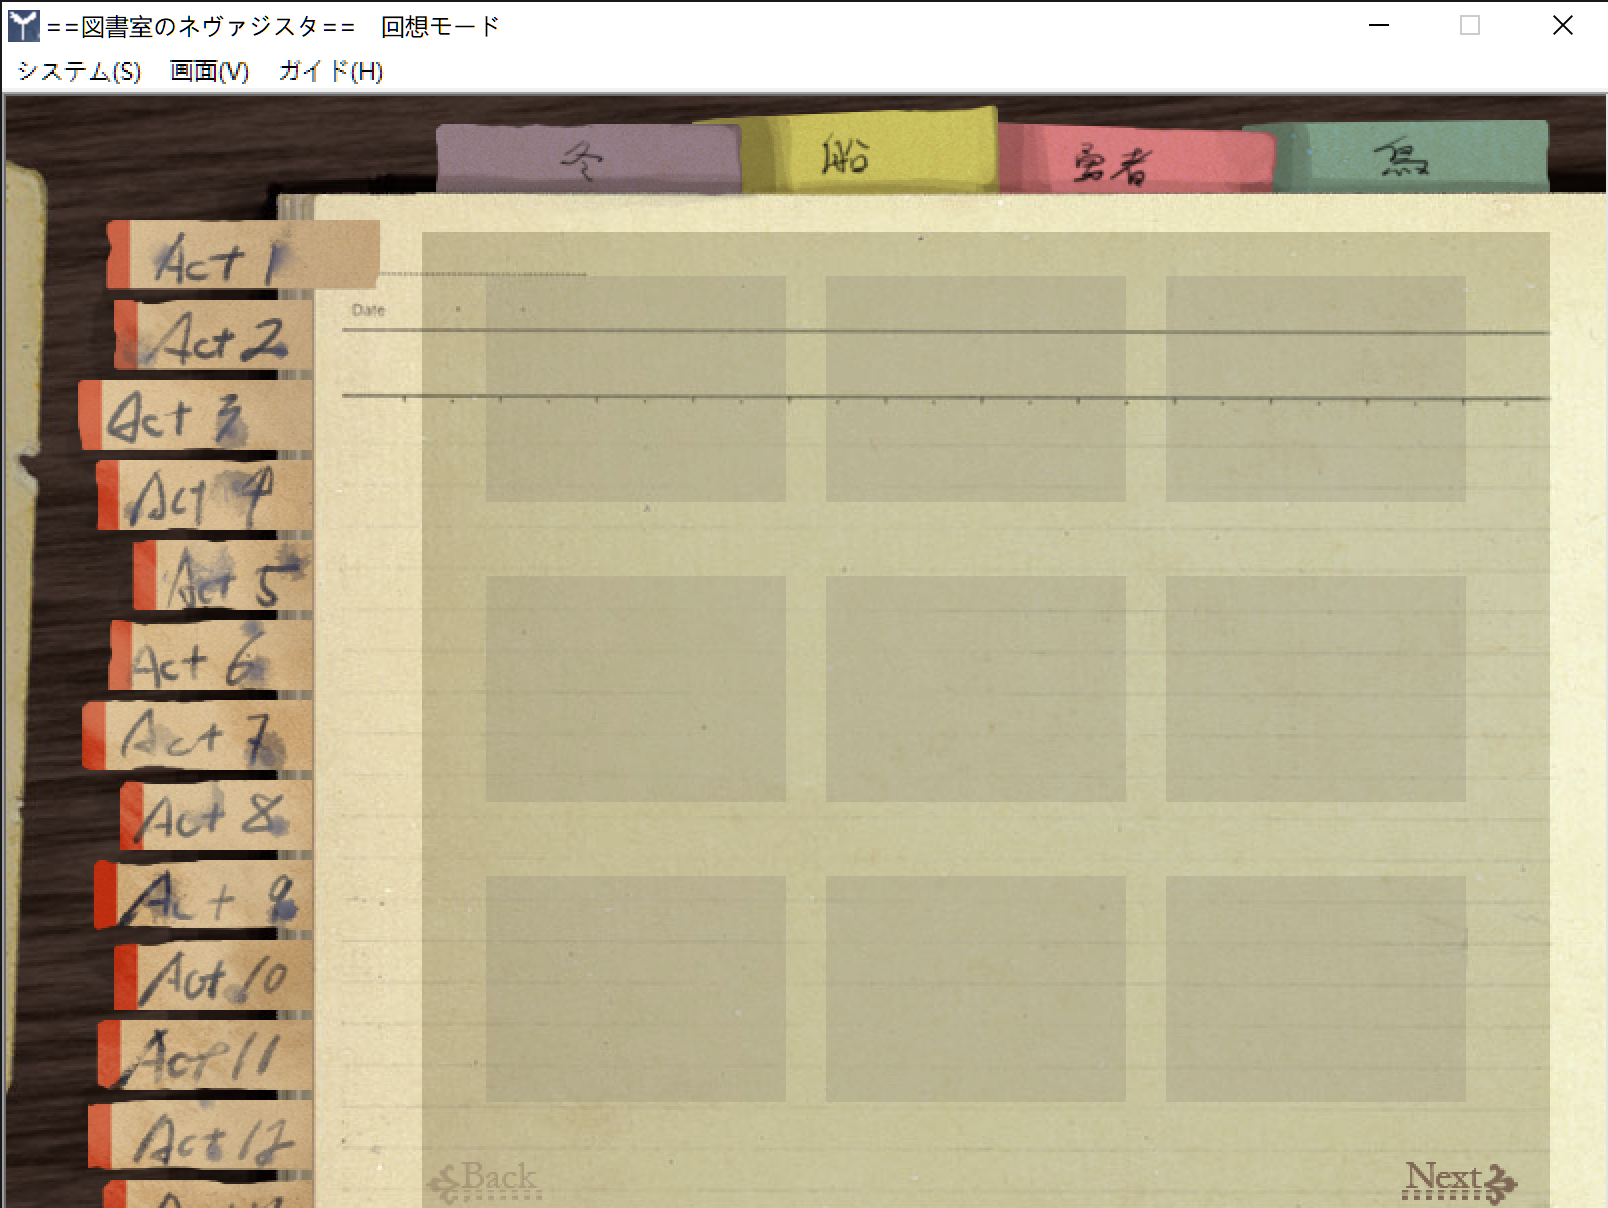 ==図書室のネヴァジスタ==　回想モード
システム(S) 画面(V) ガイド(H)
冬 船 勇者 鳥
Act 1
Date
Act 2
Act 3
Act 4
Act 5
Act 6
Act 7
Act 8
Act 9
Act 10
Act 11
Act 12
Back Next